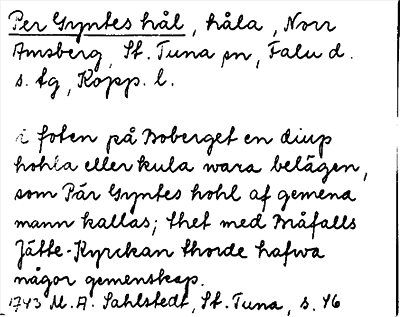 Per Gyntes hål, håla, Norr
Amsberg, St. Tuna sn, Falu d.
s. fg, Kopp. l.
i foten på Boberget en diup
hohla eller kula wara belägen,
som Pär Gyntes hohl af gemena
mann kallas; thet med Måfalls
Jätte-Kyrckan thorde hafwa
någor gemenskap.
1743 M. A. Sahlstedt, St. Tuna, s. 46